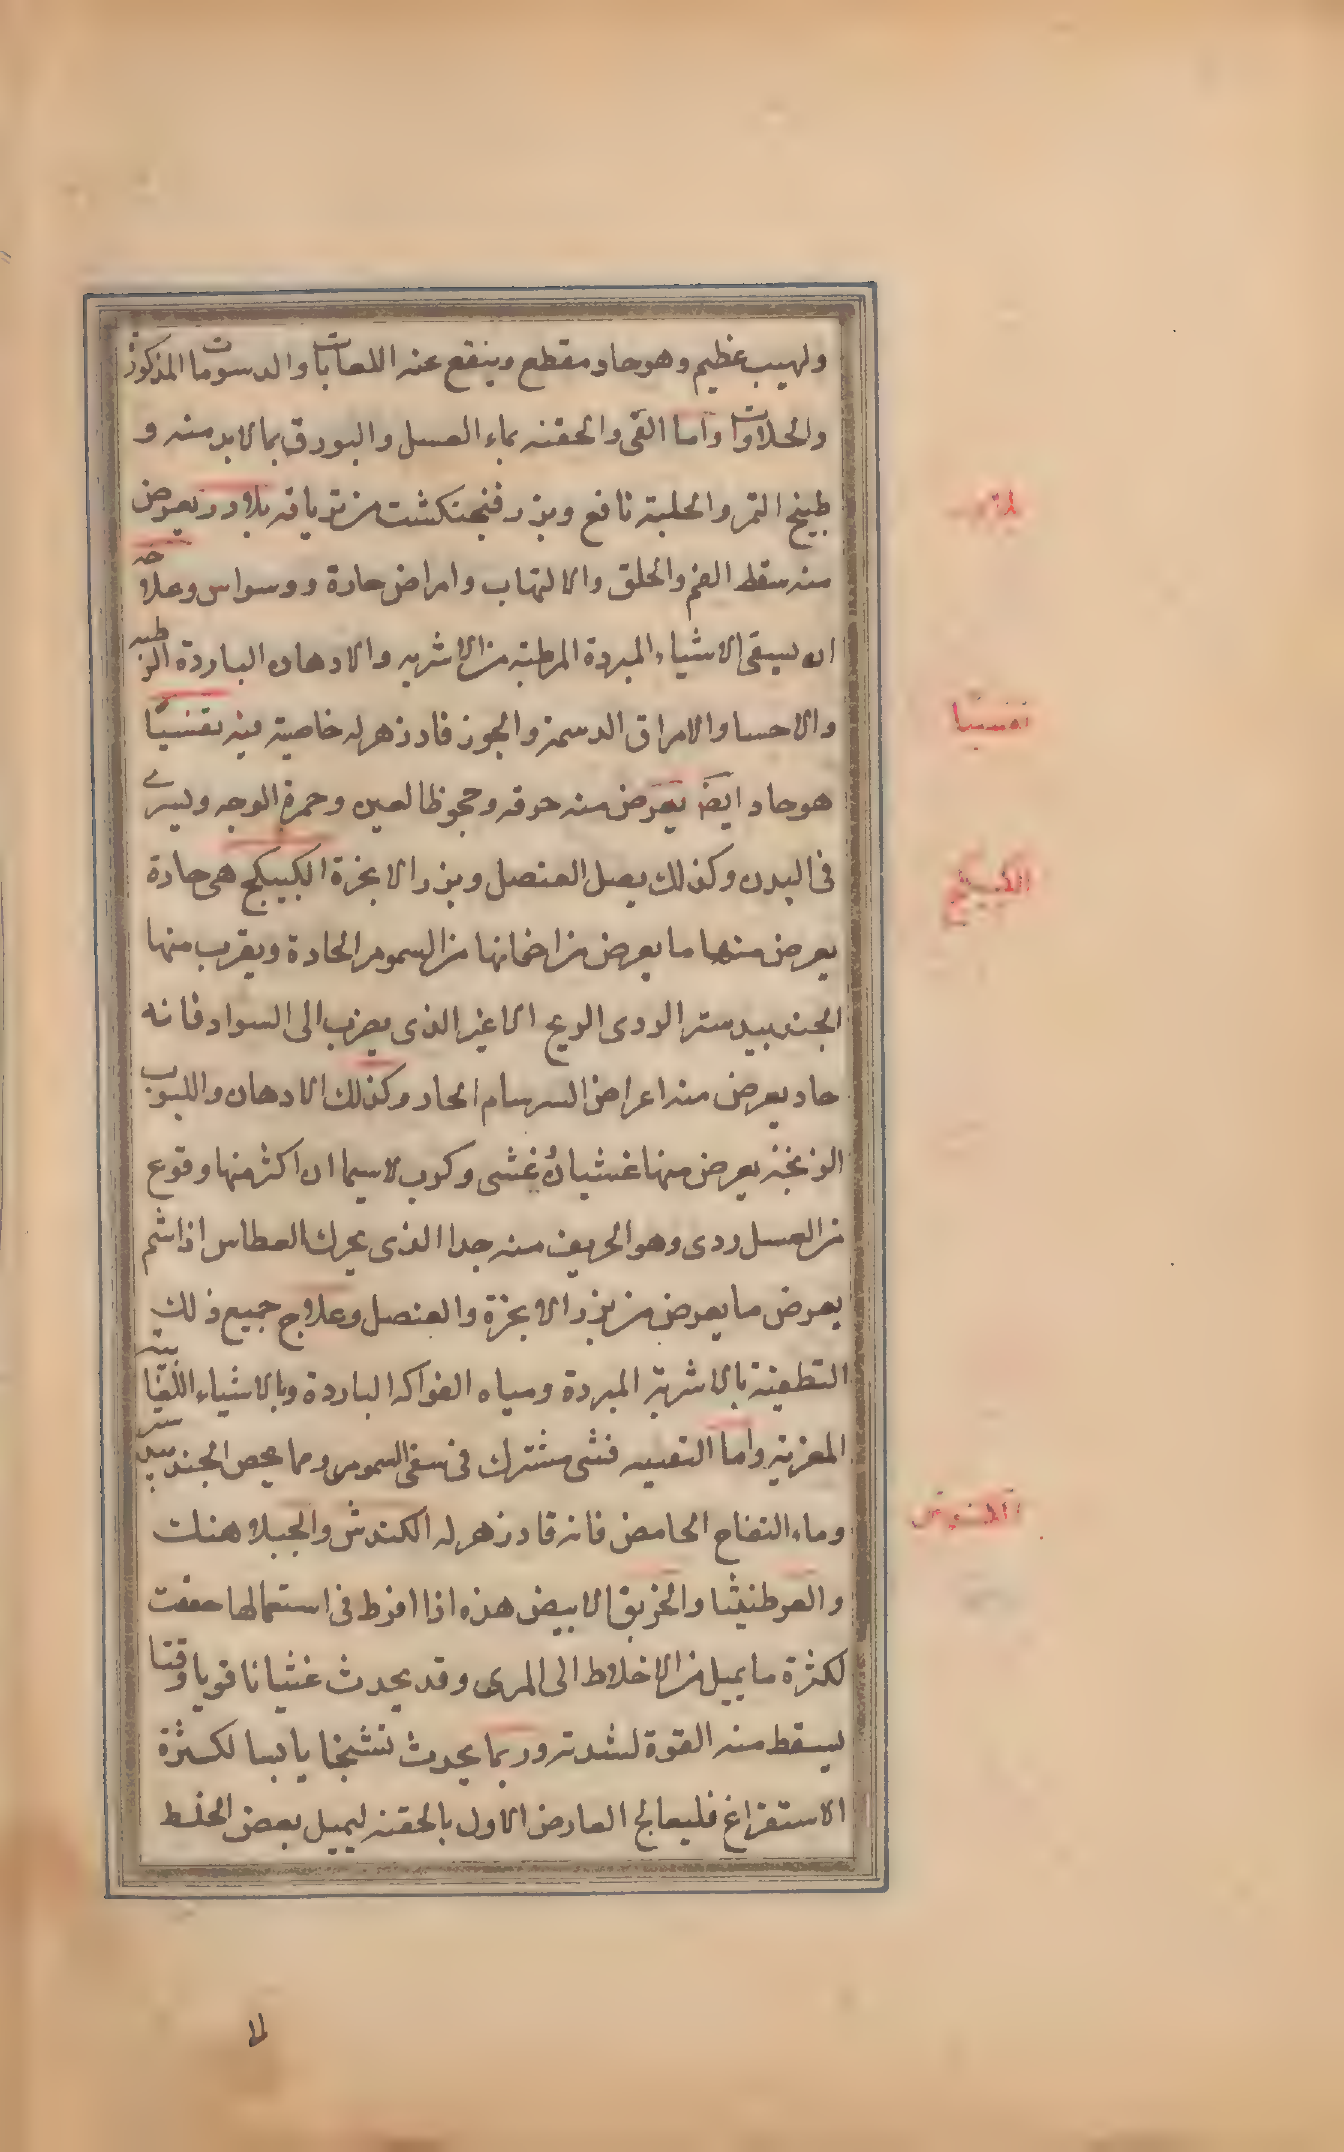 ولهيب عظيم وهو حاد مقطع وينفع عنه اللعابات والدسومات المذكورة
والحلاوات واما القى والحقنه بماء العسل والبورق بما لابد منه و
طبيخ التمر والحلبة نافع وبزر فنجنكشت من ترياقه بلادر يعرض
منه سقط الفم والحلق والالتهاب وامراض حادة ووسواس وعلاجه
ان يسقى الاشياء المبردة المرطبة من الاشربه والادهان الباردة الرطبه
والاحسا والامراق الدسمة والجوز فادزهر له خاصية فيه تفسيا
هو حاد ايضا يعرض منه حرقه وجحوظ العين وحمرة الوجه ويسرى
فى البدن وكذلك بصل العنصل وبزر الانجرة الكبيكج هى حادة
يعرض منها ما يعرض من اخواتها من السموم الحادة ويقرب منها
الجندبيدستر الردى الريح الاغبر الذى يضرب الى السواد فانه
حاد يعرض منه اعراض السرسام الحار وكذلك الادهان واللبوب
الزنخة يعرض منها غشيان غشى وكرب لاسيما ان اكثر منها وقوع
من العسل ردى وهو الحريف منه جدا الذى يحرك العطاس اذا شم
يعرض ما يعرض من بزر الانجرة والعنصل وعلاج جميع ذلك
التطفية بالاشربة المبردة ومياه الفواكه الباردة وبالاشياء اللعابية
المغرية واما التقييه فشى مشترك فى سقى السموم ومما يخص الجندبيدستر
وماء التفاح الحامض فانه فادزهر له الكندش والجبلاهنك
والعرطنيثا والخربق الابيض هذه اذا افرط فى استعمالها خنقت
لكثرة ما يميل من الاخلاط الى المرى وقد يحدث غثيانا قويا وقيا
يسقط منه القوة لشدته وربما يحدث تشنجا يابسا لكثرة
الاستفراغ فليعالج العارض الاول بالحقنه ليميل بعض الخلط
تفسيا
الكبيكج